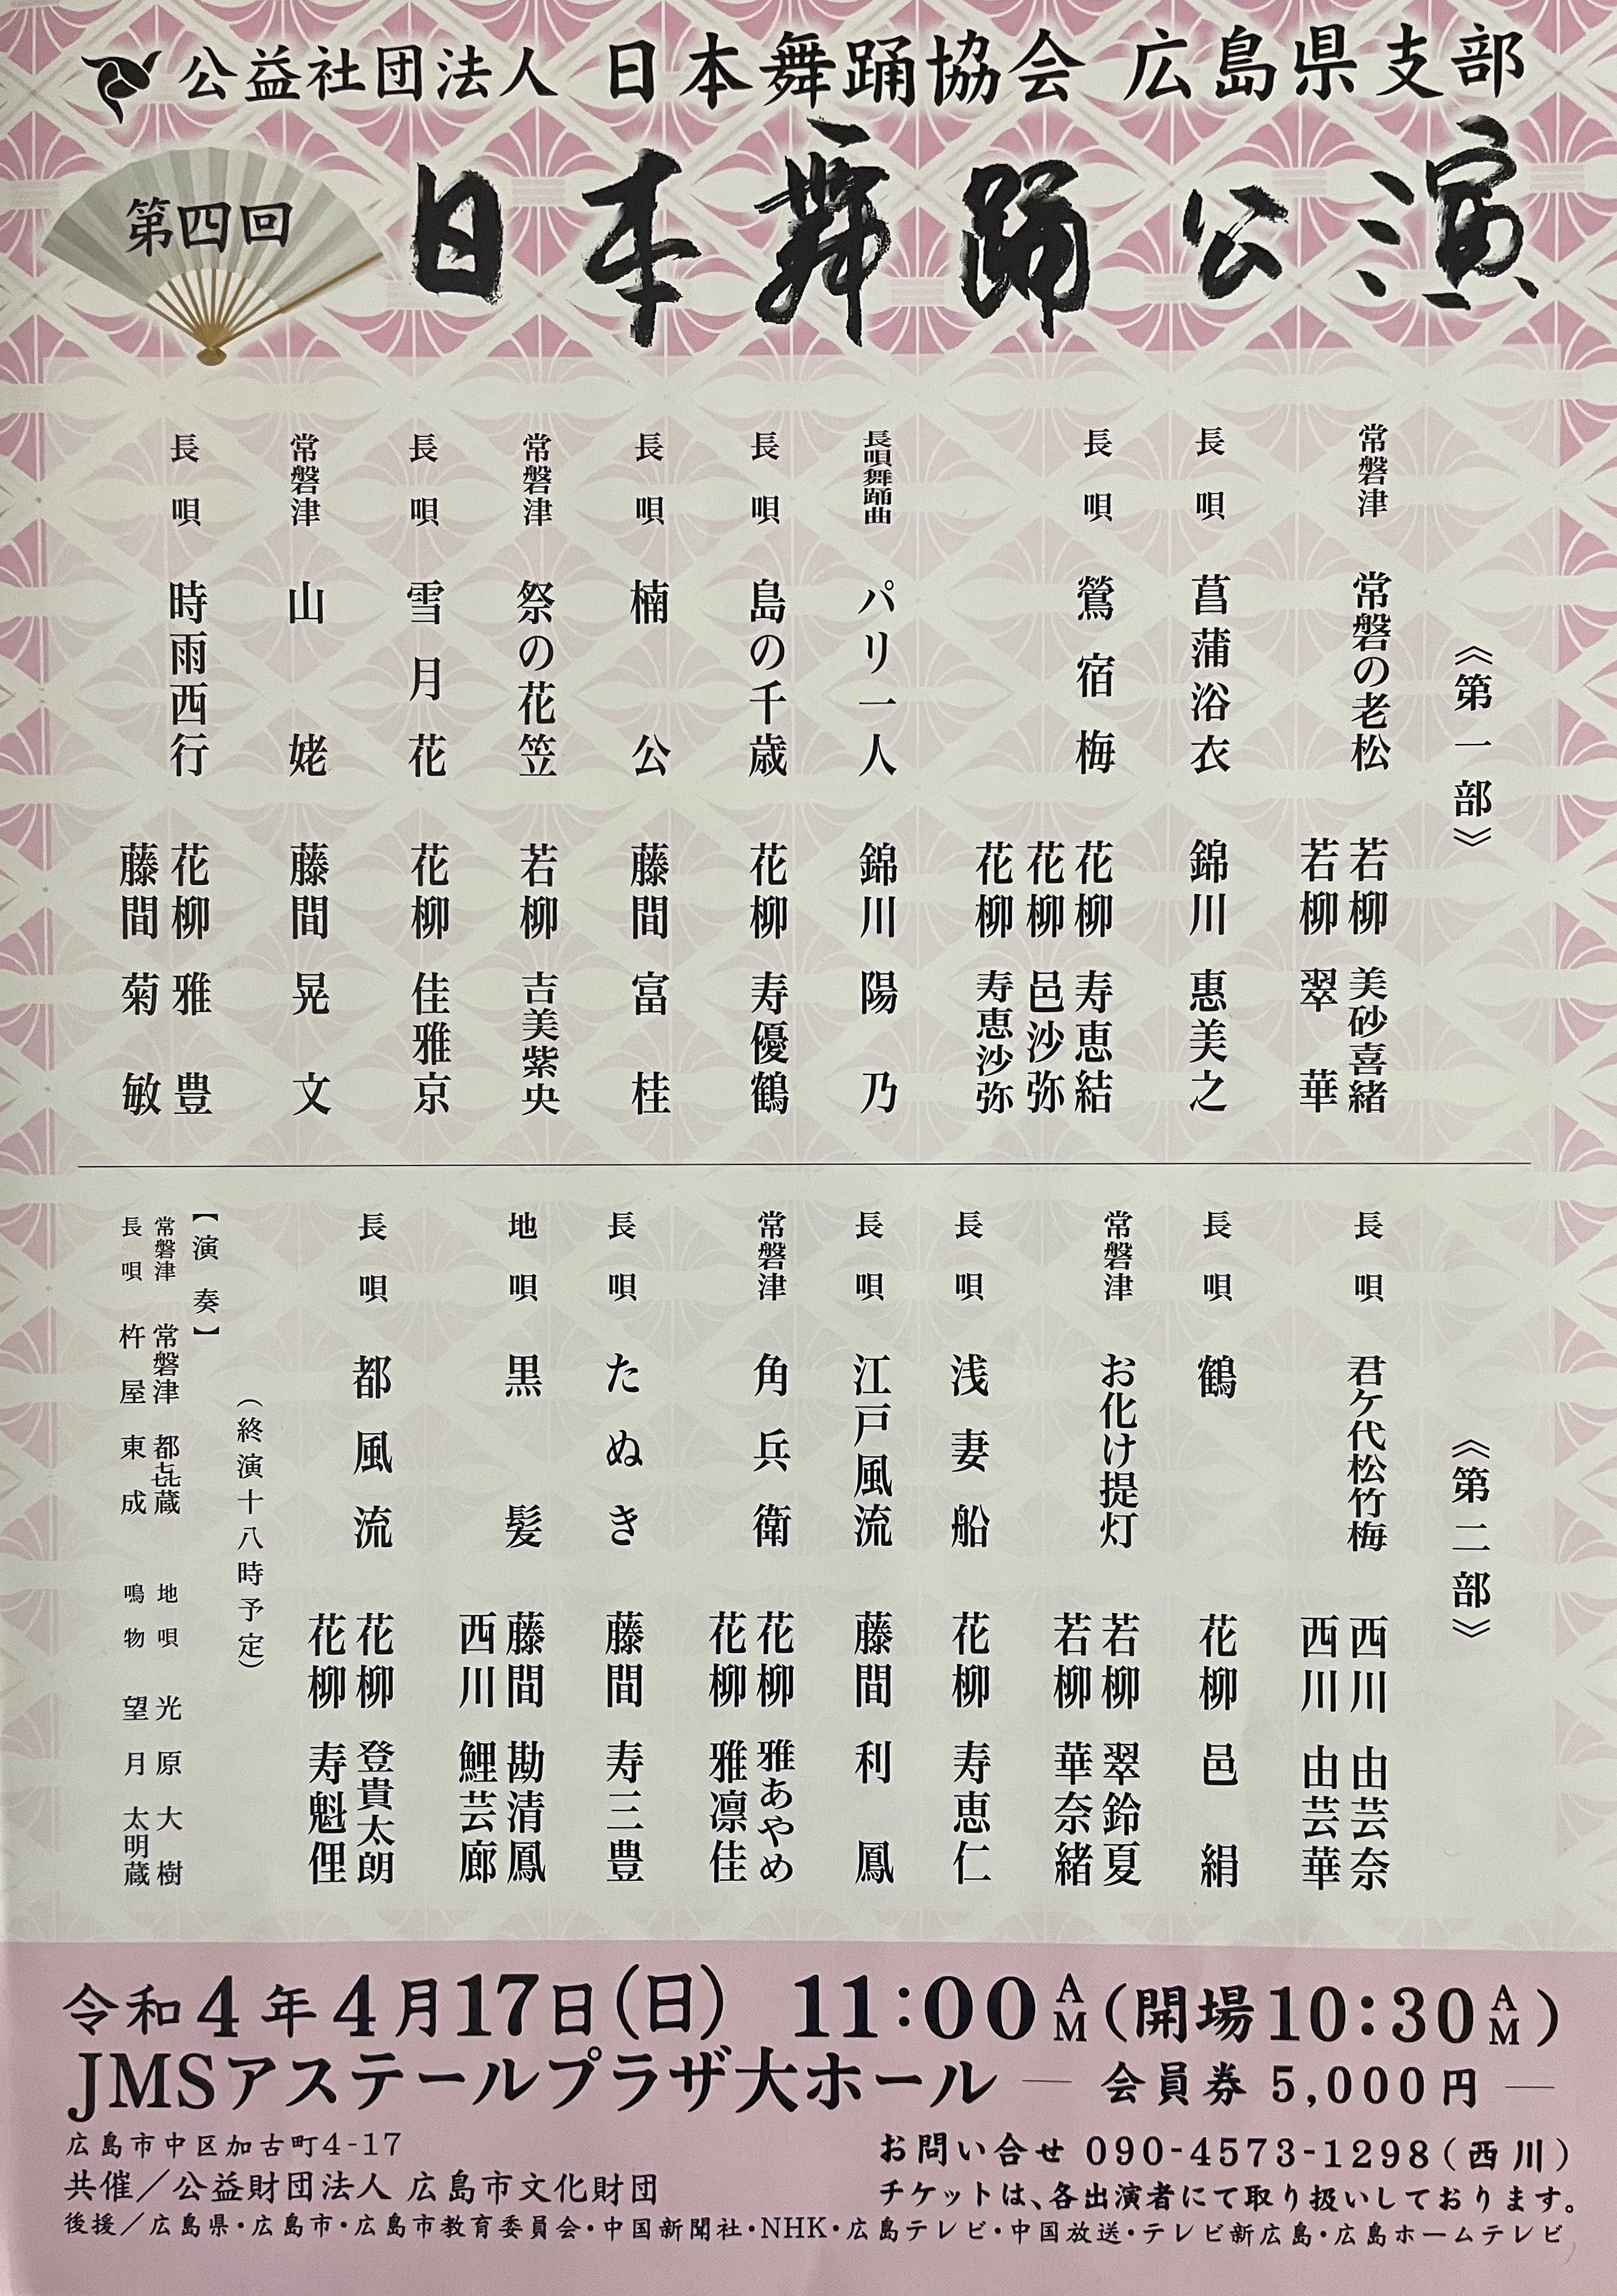 公益社団法人 日本舞踊協会 広島県支部
第四回
日本舞踊公演
《第一部》
常磐津 常磐の老松 若柳 美砂喜緒
若柳 翠華
長唄 菖蒲浴衣 錦川 惠美之
長唄 鶯宿梅 花柳 寿恵結
花柳 邑沙弥
花柳 寿恵沙弥
長唄舞踊曲 パリ一人 錦川 陽乃
長唄 島の千歳 花柳 寿優鶴
長唄 楠公 藤間 富桂
常磐津 祭の花笠 若柳 吉美紫央
長唄 雪月花 花柳 佳雅京
常磐津 山姥 藤間 晃文
長唄 時雨西行 花柳 雅豊
藤間 菊敏
《第二部》
長唄 君ケ代松竹梅 西川 由芸奈
西川 由芸華
長唄 鶴 花柳 邑絹
常磐津 お化け提灯 若柳 翠鈴夏
若柳 華奈緒
長唄 浅妻船 花柳 寿恵仁
長唄 江戸風流 藤間 利鳳
常磐津 角兵衛 花柳 雅あやめ
花柳 雅凛佳
長唄 たぬき 藤間 寿三豊
地唄 黒髪 藤間 勘清鳳
西川 鯉芸廊
長唄 都風流 花柳 登貴太朗
花柳 寿魁俚
(終演十八時予定)
【演奏】
常磐津 常磐津 都㐂蔵 地唄 光原 大樹
長唄 杵屋 東成 鳴物 望月 太明蔵
令和4年4月17日(日) 11:00AM(開場10:30AM)
JMSアステールプラザ大ホール ― 会員券 5,000円 ―
広島市中区加古町4-17
お問い合せ 090-4573-1298(西川)
共催/公益財団法人 広島市文化財団
チケットは、各出演者にて取り扱いしております。
後援/広島県・広島市・広島市教育委員会・中国新聞社・NHK・広島テレビ・中国放送・テレビ新広島・広島ホームテレビ